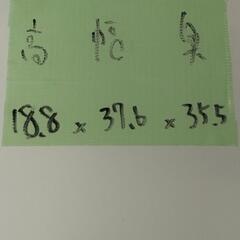 高 幅 奥
18.8 x 37.6 x 35.5